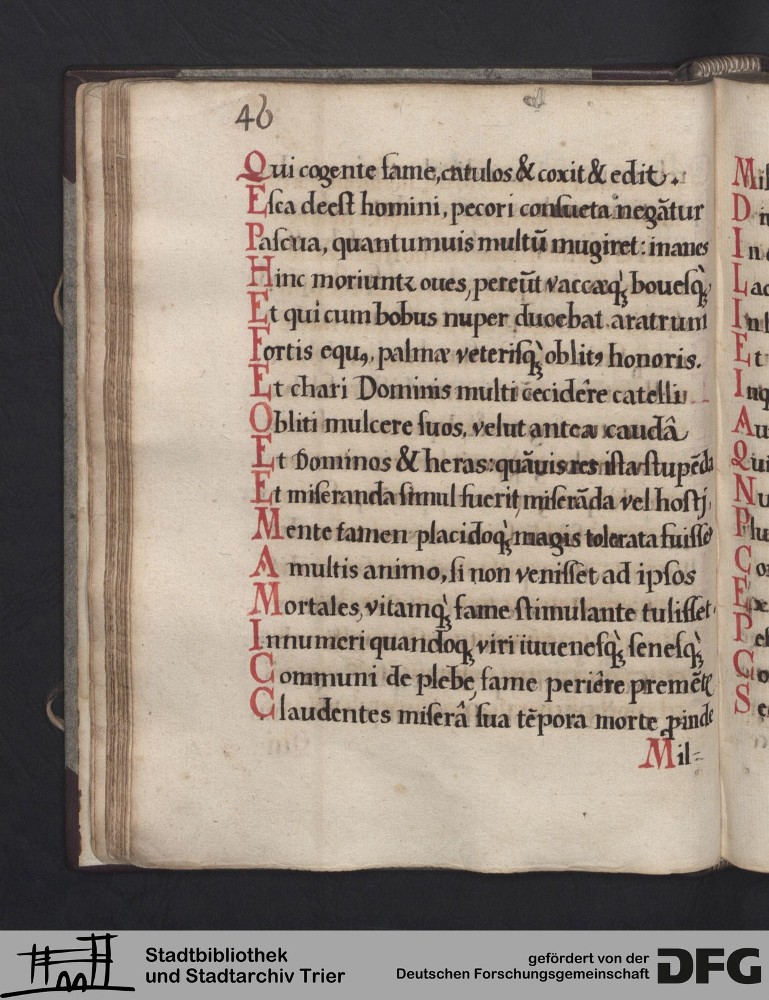 46
Qui cogente fame, catulos & coxit & edit.
Esca deest homini, pecori consueta negātur
Pascua, quantumuis multū mugiret: inanes
Hinc moriuntꝛ oues, pereūt vaccæqꝫ bouesqꝫ
Et qui cum bobus nuper ducebat aratrum
Fortis equꝰ, palmæ veterisqꝫ oblitꝰ honoris.
Et chari Dominis multi cecidêre catelli
Obliti mulcere suos, velut antea caudâ
Et Dominos & heras: quāuis res ista stupēda
Et miseranda simul fuerit, miserāda vel hostj,
Mente tamen placidoqꝫ magis tolerata fuisse
A multis animo, si non venisset ad ipsos
Mortales, vitamqꝫ fame stimulante tulisset.
Innumeri quandoqꝫ viri iuuenesqꝫ senesqꝫ
Communi de plebe, fame periêre premēte
Claudentes miserâ sua tēpora morte ꝓinde
Mil=
Mil
D
In
Lac
In
Et
Inq
Au
Qui
Nu
Plu
Co
Ex
Pes
Co
Se
Stadtbibliothek
und Stadtarchiv Trier
gefördert von der
Deutschen Forschungsgemeinschaft
DFG